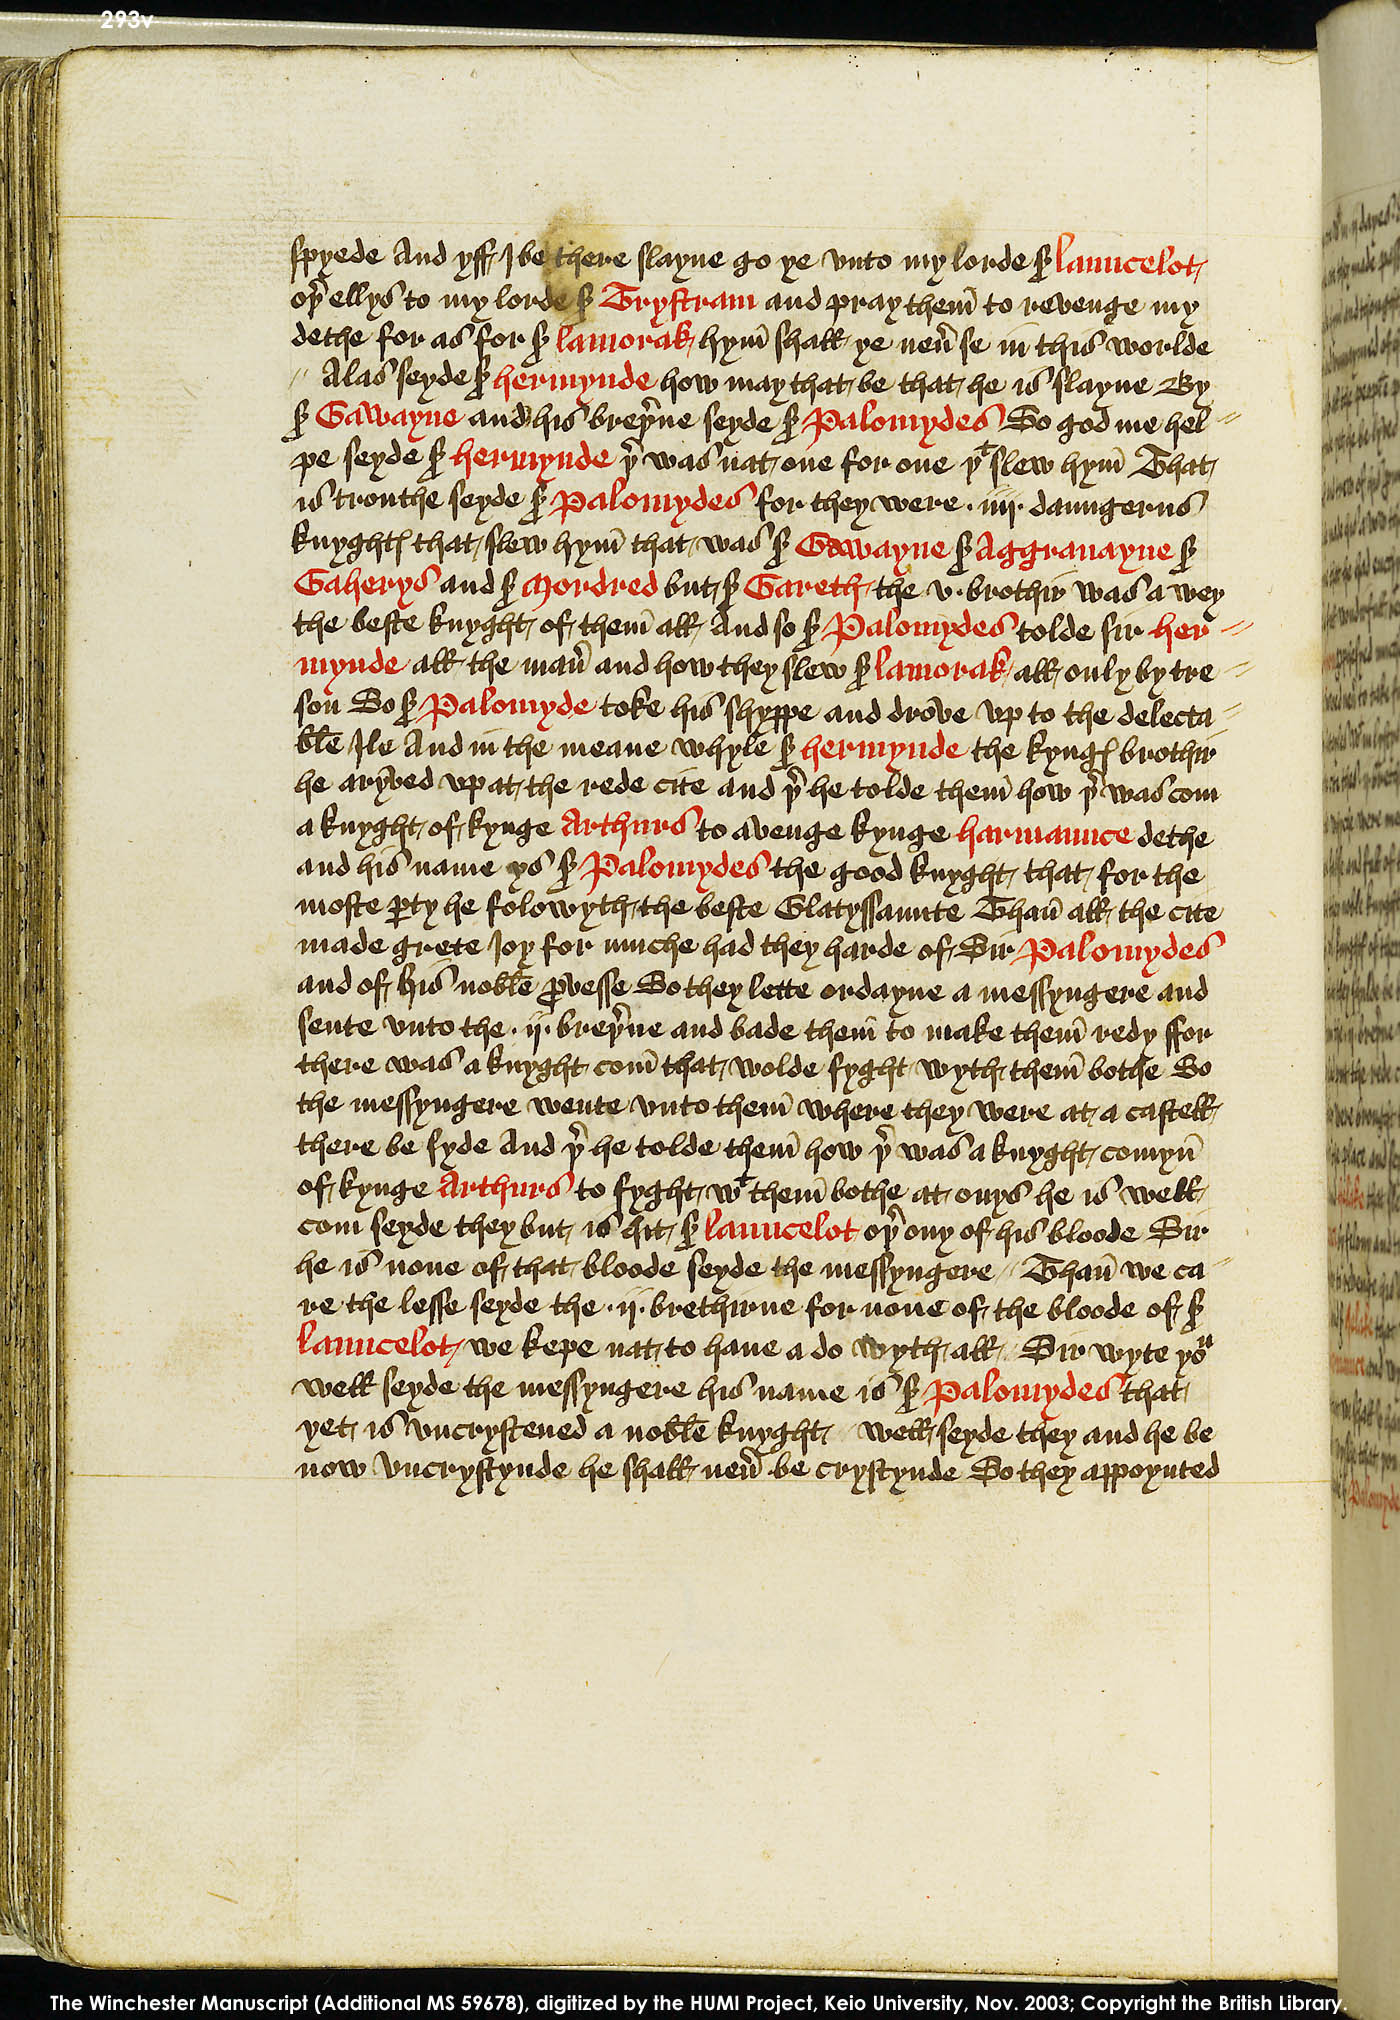 293v
spyede And yff I be there slayne go ye vnto my lorde sr launcelot
oþr ellys to my lorde sr Trystram and pray them̄ to revenge my
dethe for as for sr lamorak hym̄ shall ye neū se in this worlde
// Alas seyde sr hermynde how may that be that he is slayne By
sr Gawayne and his breþrne seyde sr Palomydes So god me hel//
pe seyde sr hermynde þr was nat one for one þt slew hym̄ That
is trouthe seyde sr Palomydes for they were .iiij. daungerus
knyghtꝭ that slew hym̄ that was sr Gawayne sr Aggravayne sr
Gaherys and sr Mordred but sr Gareth the v. brothir was a wey
the beste knyght of them̄ all And so sr Palomydes tolde sir her//
mynde all the man̄ and how they slew sr lamorak all only by tre//
son So sr Palomyde toke his shyppe and drove vp to the delecta//
ble Ile And in the meane whyle sr hermynde the kyngꝭ brothir
he aryved vp at the rede cite and þr he tolde them̄ how þr was com
a knyght of kynge Arthurs to avenge kynge harmaunce dethe
and his name ys sr Palomydes the good knyght that for the
moste ꝑty he folowyth the beste Glatyssaunte Than̄ all the cite
made grete Joy for muche had they harde of Sir Palomydes
and of his noble ꝓvesse So they lette ordayne a messyngere and
sente vnto the .ij. breþrne and bade them̄ to make them̄ redy ffor
there was a knyght com̄ that wolde fyght wyth them̄ bothe So
the messyngere wente vnto them̄ where they were at a castell
there be syde And þr he tolde them̄ how þr was a knyght comyn̄
of kynge Arthurs to fyght wt them̄ bothe at onys he is well
com seyde they but is hit sr launcelot oþr ony of his bloode Sir
he is none of that bloode seyde the messyngere // Than̄ we ca//
re the lesse seyde the .ij. brethirne for none of the bloode of sr
launcelot we kepe nat to haue a do wyth all // Sir wyte yoͧ
well seyde the messyngere his name is sr Palomydes that
yet is vncrystened a noble knyght // well seyde they and he be
now vncrystynde he shall neū be crystynde So they appoynted
The Winchester Manuscript (Additional MS 59678), digitized by the HUMI Project, Keio University, Nov. 2003; Copyright the British Library.